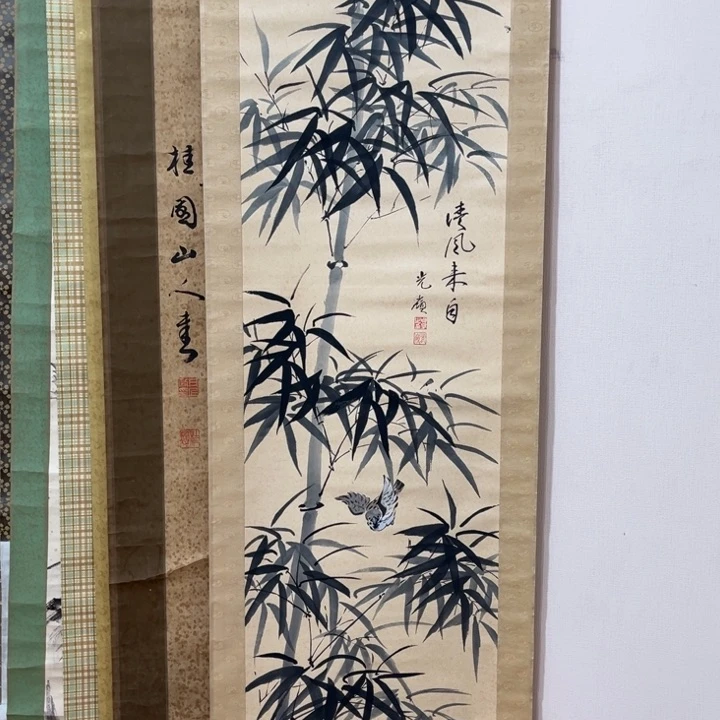 清風来自
光嶺
桂園山人書